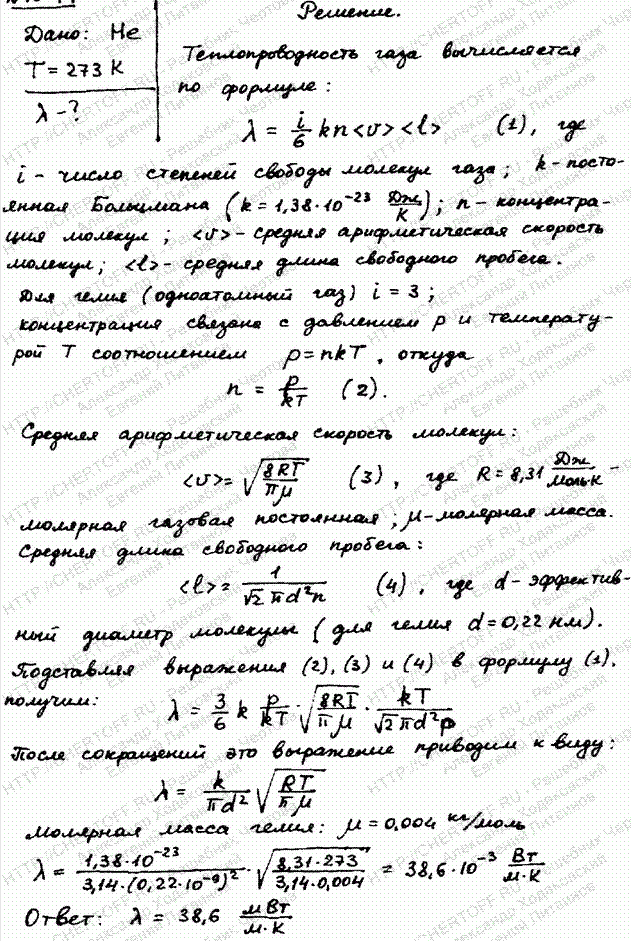 Решение.
Дано: He
T = 273 К
λ - ?
Теплопроводность газа вычисляется
по формуле:
λ = i/6 kn<υ><l> (1), где
i - число степеней свободы молекул газа; k - посто-
янная Больцмана (k = 1,38·10⁻²³ Дж/К); n - концентра-
ция молекул; <υ> - средняя арифметическая скорость
молекул; <l> - средняя длина свободного пробега.
Для гелия (одноатомный газ) i = 3;
концентрация связана с давлением p и температу-
рой T соотношением p = nkT, откуда
n = p/kT (2).
Средняя арифметическая скорость молекул:
<υ> = √(8RT/πμ) (3), где R = 8,31 Дж/моль·К -
молярная газовая постоянная; μ - молярная масса.
Средняя длина свободного пробега:
<l> = 1/(√2 πd²n) (4), где d - эффектив-
ный диаметр молекулы (для гелия d = 0,22 нм).
Подставляя выражения (2), (3) и (4) в формулу (1),
получим: λ = 3/6 k p/kT · √(8RT/πμ) · kT/(√2 πd²p)
После сокращений это выражение приводим к виду:
λ = k/πd² √(RT/πμ)
Молярная масса гелия: μ = 0,004 кг/моль
λ = 1,38·10⁻²³/(3,14·(0,22·10⁻⁹)²) · √(8,31·273/(3,14·0,004)) = 38,6·10⁻³ Вт/м·К
Ответ: λ = 38,6 мВт/м·К
HTTP://CHERTOFF.RU - Решебник Чертова
Александр Ходаковский
Евгений Литвинов